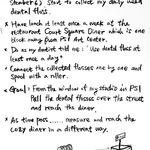 Starbergs) Start to collect my daily used
dental floss.
* Have lunch at least once a week at the
restaurant Court Square Diner which is one
block away from PS1 Art center.
* Do as my dentist told me: "Use dental floss at
least once a day"
* Connect the collected flosses one by one and
Spool with a roller.
* Goal: From the window of my studio in PS1
Pull the dental flosses over the street
and reach the diner.
* As time pass..... measure and reach the
cozy diner in a different way.